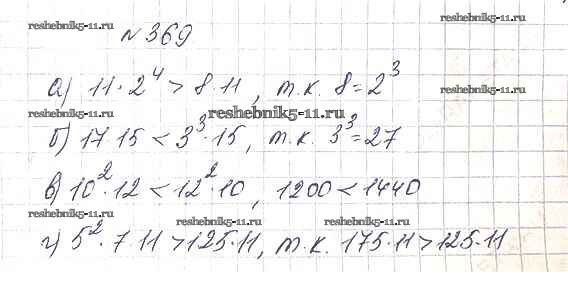 reshebnik5-11.ru
№369
reshebnik5-11.ru reshebnik5-11.ru
а) 11·2⁴ > 8·11, т.к. 8=2³
reshebnik5-11.ru reshebnik5-11.ru
б) 17·15 < 3³·15, т.к. 3³=27
в) 10²·12 < 12²·10, 1200 < 1440
reshebnik5-11.ru reshebnik5-11.ru reshebnik5-11.ru
г) 5²·7·11 > 125·11, т.к. 175·11 > 125·11